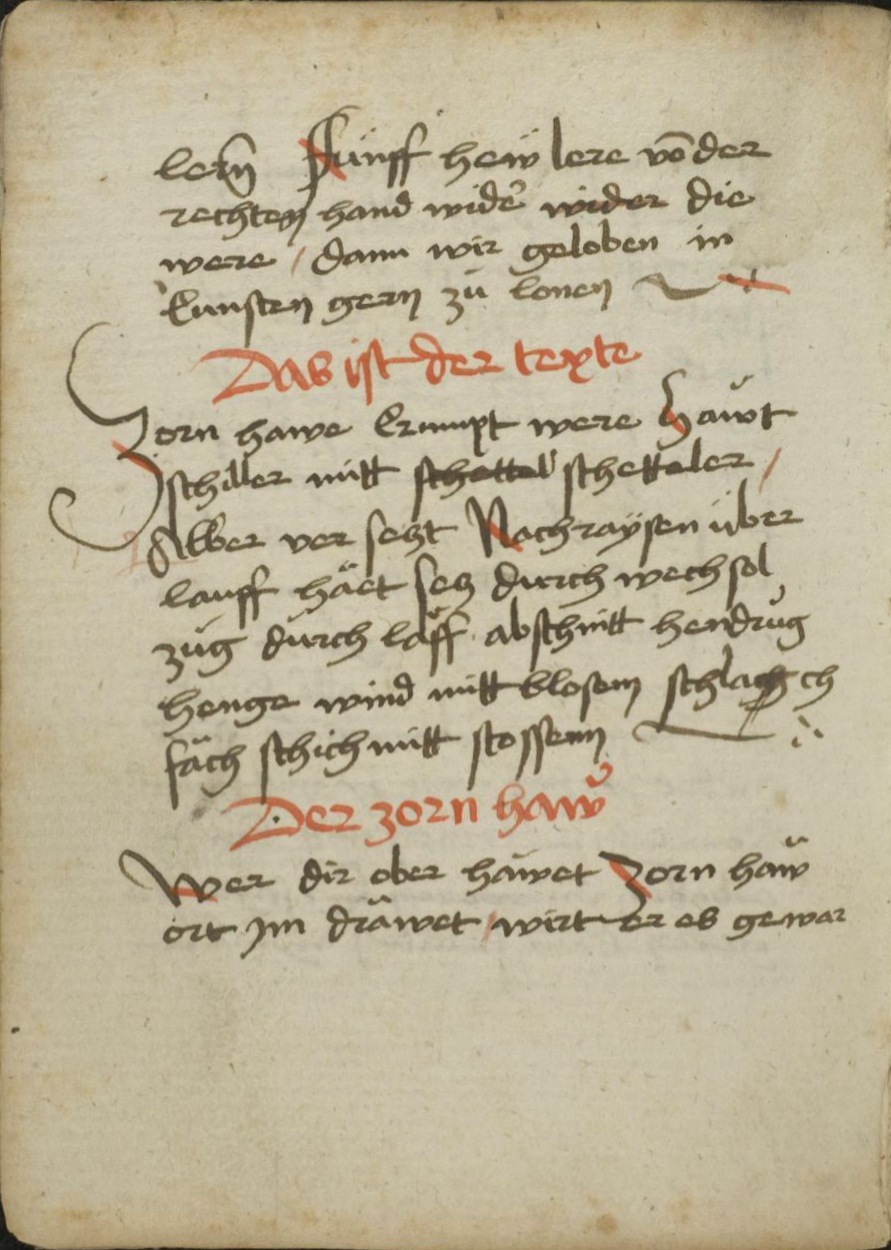 lern̄ Fünff hew lere vō der
rechten hand wider̉ wider die
were / dann wir geloben in
kunsten gern zů lonen
Das ist der texte
Zorn hawe krumpt were hawt
schiller mitt schettel schetteler /
Alber ver setzt Nachraÿsen über
lauff häet setz durch wechsel
zug durch lauff abschnitt hendrug
henge wind mitt blosem schlach ch
fäch schich mitt stossenn
Der zorn haw
Wer dir ober häwet Zorn haw
ort Im dräwet / wirt er es gewar